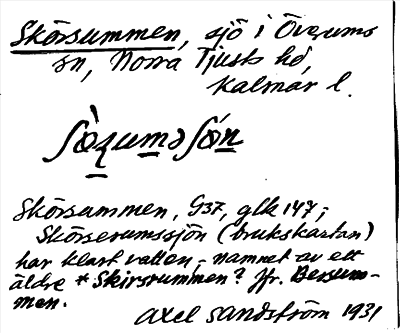 Skörsummen, sjö i Överums
sn, Norra Tjusts hd,
Kalmar l.
ʃö̀ʒumə ʃǿn
Skörsummen, G37, glk 147;
Skörserumssjön (brukskartan)
har klart vatten; namnet av ett
äldre * Skirsrummen? Jfr. Bersum-
men.
Axel Sandström 1931